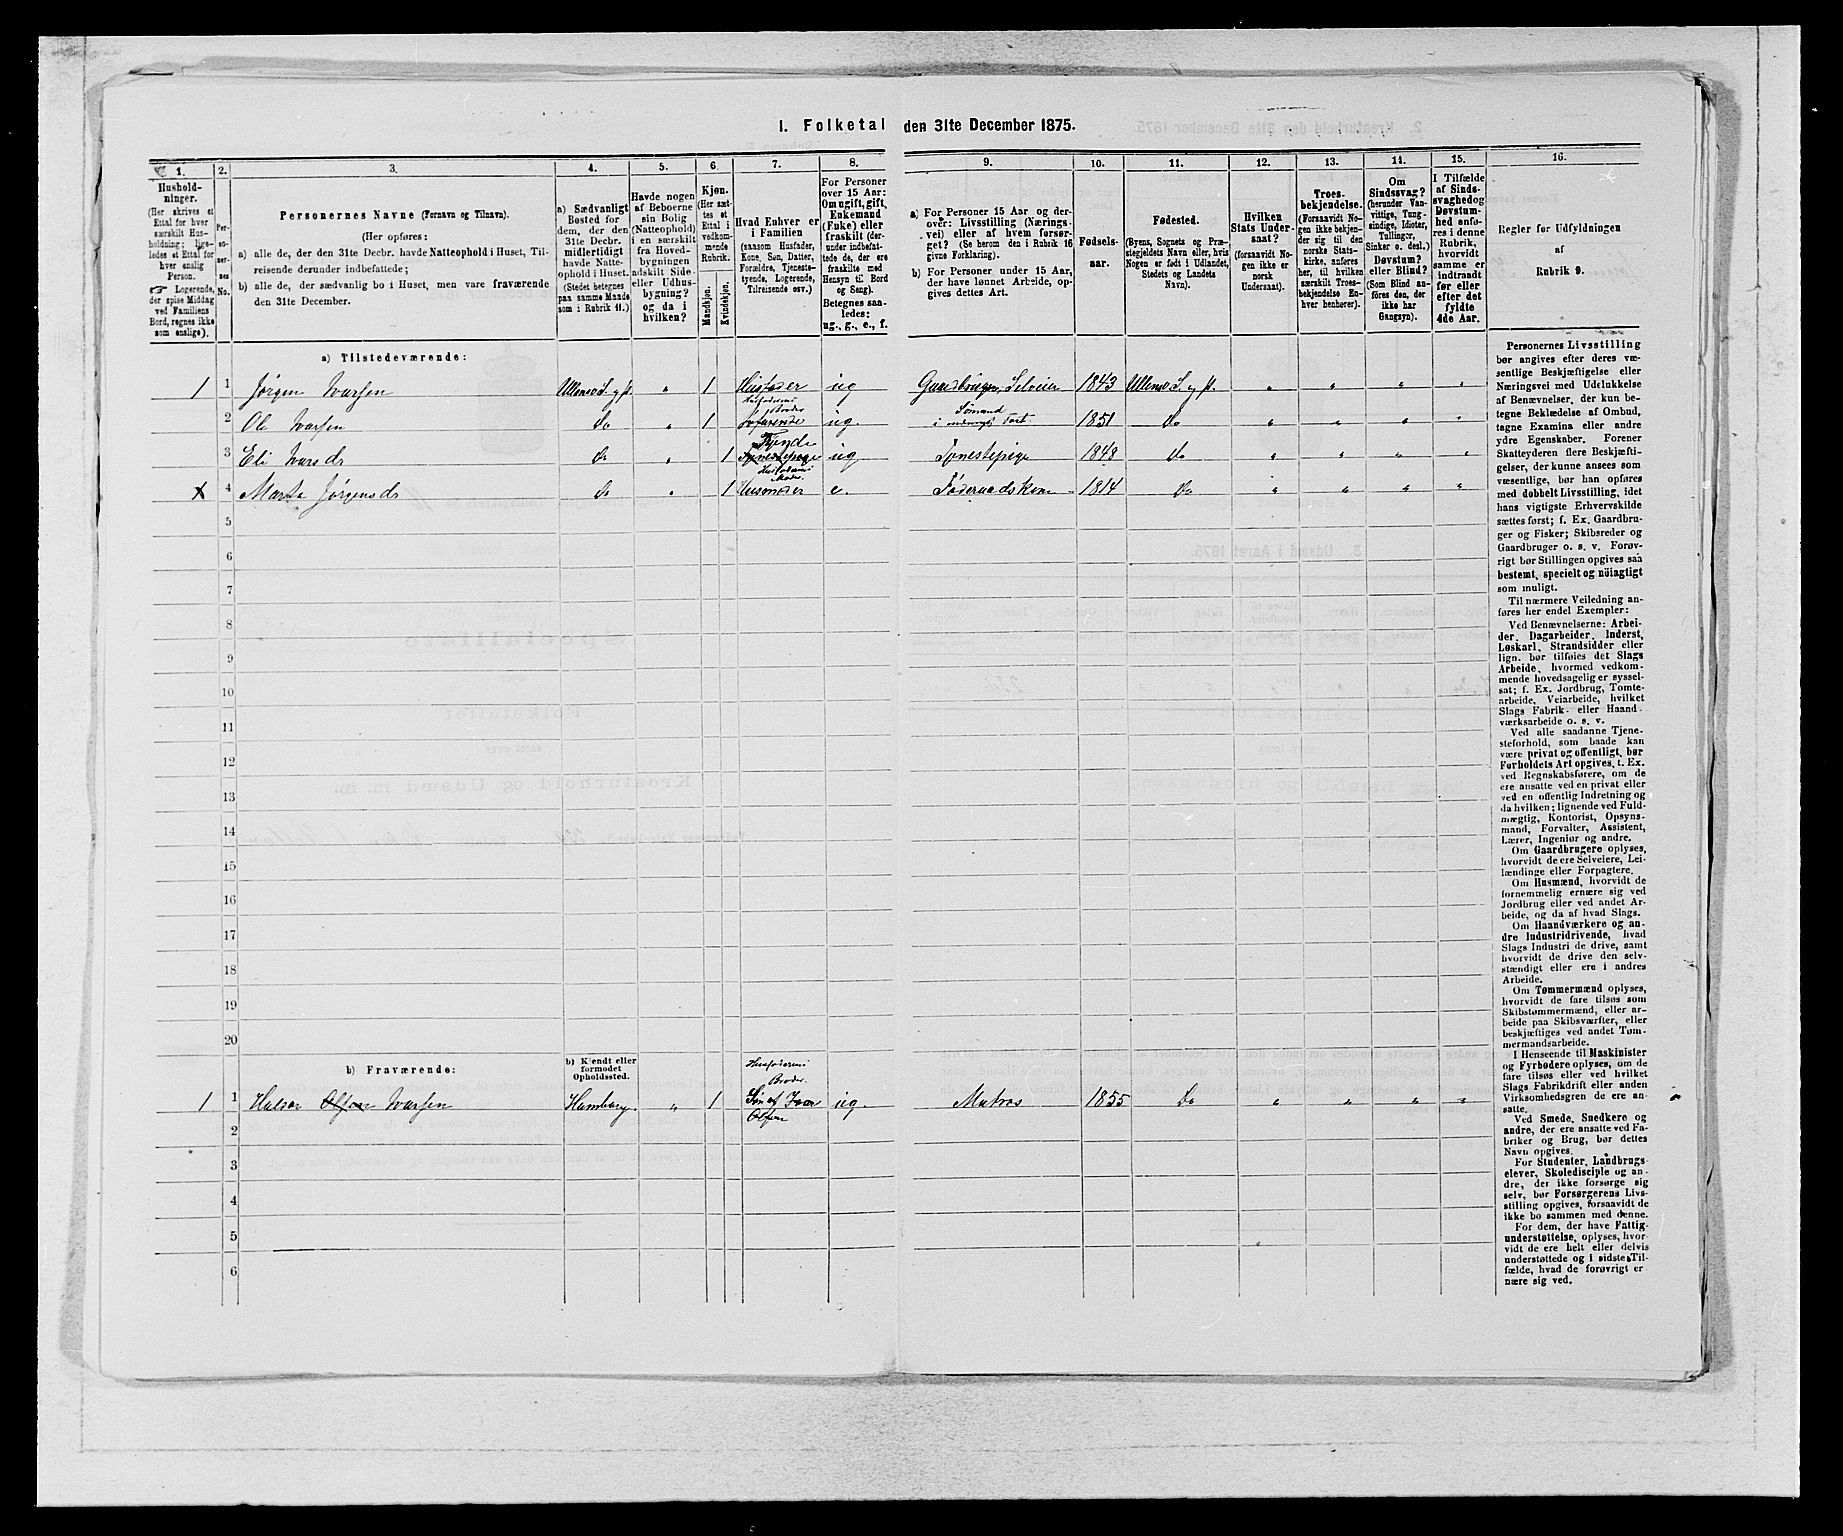 1. Folketal den 31te December 1875.
1. 2. 3. 4. 5. 6. 7. 8. 9. 10. 11. 12. 13. 14. 15. 16.
Hushold-
ninger.
(Her skrives et
Ettal for hver
særskilt Hus-
holdning; lige-
ledes et Ettal for
hver enslig
Person.
☞ Logerende,
der spise Middag
ved Familiens
Bord, regnes ikke
som enslige).
Per-
so-
ner-
nes
No.
Personernes Navne (Fornavn og Tilnavn).
(Her opføres:
a) alle de, der den 31te Decbr. havde Natteophold i Huset, Til-
reisende derunder indbefattede;
b) alle de, der sædvanlig bo i Huset, men vare fraværende
den 31te December.
a) Sædvanligt
Bosted for
dem, der den
31te Decbr.
midlertidigt
havde Natte-
ophold i Huset.
(Stedet betegnes
paa samme Maade
som i Rubrik 11.)
Havde nogen
af Beboerne
sin Bolig
(Natteophold)
i en særskilt
fra Hoved-
bygningen
adskilt Side-
eller Udhus-
bygning?
og da i
hvilken?
Kjøn.
(Her sæt-
tes et
Ettal i
vedkom-
mende
Rubrik.
Mandkjøn.
Kvindekjøn.
Hvad Enhver er
i Familien
(saasom Husfader,
Kone, Søn, Datter,
Forældre, Tjeneste-
tyende, Logerende,
Tilreisende osv.)
For Personer
over 15 Aar:
Om ugift, gift,
Enkemand
(Enke) eller
fraskilt (der-
under indbefat-
tede de, der ere
fraskilte med
Hensyn til Bord
og Seng).
Betegnes saa-
ledes:
ug., g., e., f.
a) For Personer 15 Aar og der-
over: Livsstilling (Nærings-
vei) eller af hvem forsør-
get? (Se herom den i Rubrik 16
givne Forklaring).
b) For Personer under 15 Aar,
der have lønnet Arbeide, op-
gives dettes Art.
Fødsels-
aar.
Fødested.
(Byens, Sognets og Præ-
stegjeldets Navn eller, hvis
Nogen er født i Udlandet,
Stedets og Landets
Navn).
Hvilken
Stats Under-
saat?
(forsaavidt No-
gen ikke er
norsk
Undersaat).
Troes-
bekjendelse.
(Forsaavidt No-
gen ikke bekjen-
der sig til den
norske Stats-
kirke, anføres
her, til hvilken
særskilt Troes-
bekjendelse En-
hver henhører).
Om
Sindssvag?
(herunder Van-
vittige, Tung-
sindige, Idioter,
Tullinger,
Sinker o. desl.)
Døvstum?
eller Blind?
(Som Blind an-
føres den, der
ikke har
Gangsyn).
I Tilfælde
af Sinds-
svaghed og
Døvstum-
hed anfø-
res i denne
Rubrik,
hvorvidt
samme er
indtraadt
før eller
efter det
fyldte
4de Aar.
Regler for Udfyldningen
af
Rubrik 9.
a) Tilstedeværende:
1 1 Jørgen Ivarsen Ullensv. S. og P. " 1 Husfader ug Gaardbruger, Selveier 1843 Ullensv. S. og P. " " " "
Husfaderens
Broder
2 Ole Ivarsen do " 1 ug. Sømand
i udenrigs Fart. 1851 do " " " "
3 Eli Ivarsdr do " 1 Tjenestepige ug Tjenestepige 1848 do " " " "
Husfaderens
Moder.
x 4 Marta Jørgensdr do " 1 Husmoder e. Føderaadskone 1814 do " " " "
5
6
7
8
9
10
11
12
13
14
15
16
17
18
19
20
b) Fraværende:
b) Kjendt eller
formodet
Opholdssted.
Husfaderens
Broder.
1 1 Halvor Olsen Ivarsen Hamburg. " 1 Søn af Ivar ug. Matros 1855 do " " " "
Olsen
2
3
4
5
6
Personernes Livsstilling
bør angives efter deres væ-
sentlige Beskjæftigelse eller
Næringsvei med Udelukkelse
af Benævnelser, der kun be-
tegne Beklædelse af Ombud,
tagne Examina eller andre
ydre Egenskaber. Forener
Skatteyderen flere Beskjæfti-
gelser, der kunne ansees som
væsentlige, bør han opføres
med dobbelt Livsstilling, idet
hans vigtigste Erhvervskilde
sættes først; f. Ex. Gaardbru-
ger og Fisker; Skibsreder og
Gaardbruger o. s. v. Forøv-
rigt bør Stillingen opgives saa
bestemt, specielt og nöiagtigt
som muligt.
Til nærmere Veiledning an-
føres her endel Exempler:
Ved Benævnelserne: Arbei-
der, Dagarbeider, Inderst,
Løskarl, Strandsidder eller
lign. bør tilføies det Slags
Arbeide, hvormed vedkom-
mende hovedsagelig er syssel-
sat; f. Ex. Jordbrug, Tomte-
arbeide, Veiarbeide, hvilket
Slags Fabrik- eller Haand-
værksarbeide o. s. v.
Ved alle saadanne Tjene-
steforhold, som baade kan
være privat og offentligt, bør
Forholdets Art opgives, t. Ex.
ved Regnskabsførere, om de
ere ansatte ved en privat eller
ved en offentlig Indretning og
da hvilken; lignende ved Fuld-
mægtig, Kontorist, Opsyns-
mand, Forvalter, Assistent,
Lærer, Ingeniør og andre.
Om Gaardbrugere oplyses,
hvorvidt de ere Selveiere, Lei-
lændinge eller Forpagtere.
Om Husmænd, hvorvidt de
fornemmelig ernære sig ved
Jordbrug eller ved andet Ar-
beide, og da af hvad Slags.
Om Haandværkere og an-
dre Industridrivende, hvad
Slags Industri de drive, samt
hvorvidt de drive den selv-
stændigt eller ere i andres
Arbeide.
Om Tømmermænd oplyses,
hvorvidt de fare tilsøs som
Skibstømmermænd, eller ar-
beide paa Skibsværfter, eller
beskjæftiges ved andet Tøm-
mermandsarbeide.
I Henseende til Maskinister
og Fyrbødere oplyses, om de
fare tilsøs eller ved hvilket
Slags Fabrikdrift eller anden
Virksomhedsgren de ere an-
satte.
Ved Smede, Snedkere og
andre, der ere ansatte ved Fa-
briker og Brug, bør dettes
Navn opgives.
For Studenter, Landbrugs-
elever, Skoledisciple og an-
dre, der ikke forsørge sig
selv, bør Forsørgerens Livs-
stilling opgives, forsaavidt de
ikke bo sammen med denne.
For dem, der have Fattig-
understøttelse, oplyses, hvor-
vidt de ere helt eller delvis
understøttede og i sidste Til-
fælde, hvad de forøvrigt er-
nære sig ved.